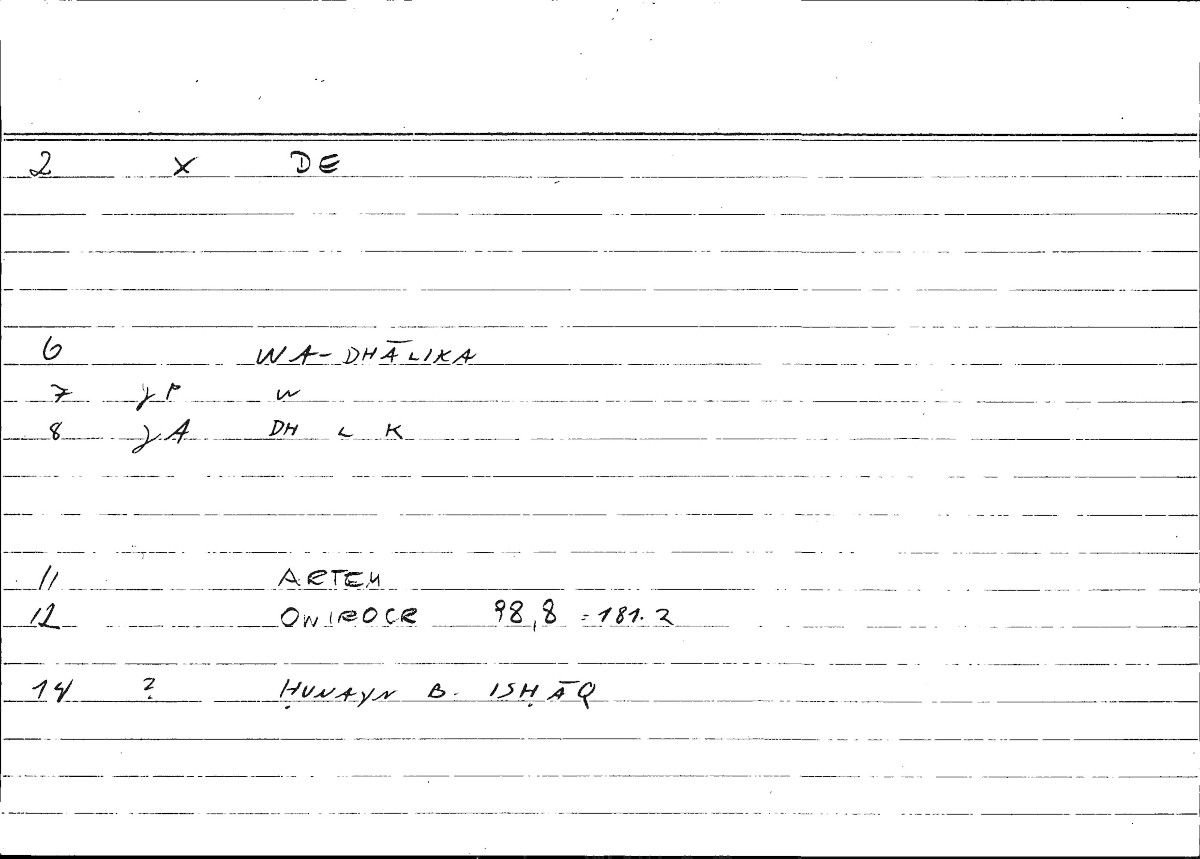 2 X DE
6 WA-DHĀLIKA
7 γP W
8 γA DH L K
11 ARTEM
12 ONIROCR 98,8 = 181.2
14 ? ḤUNAYN B. ISḤĀQ